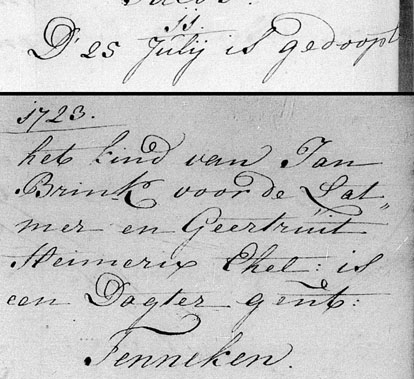 D' 25 Julij is gedoopt
1723.
het kind van Jan
Brink voor de Lat„
mer en Geertruit
Heimerix Ehel: is
een Dogter gent:
Fenneken.